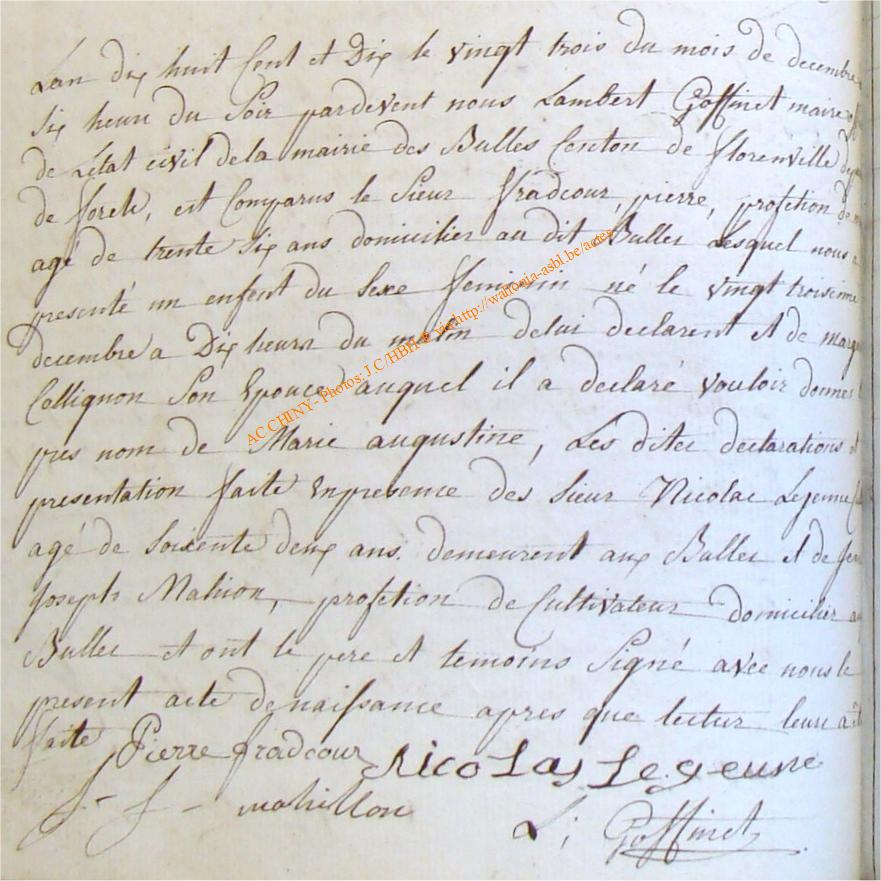 Lan dix huit Cent et Dix le vingt trois du mois de decembre
six heurs du Soir pardevent nous Lambert Goffinet maire
de Letat civil dela mairie des Bulles Centon de florenville
de foreh, est Comparus le Sieur fradcour, pierre, profetion de
agé de trente Six ans domicilier au dit Bulles Lesquel nous a
presenté un enfent du Sexe feminin né le vingt troisieme
decembre a Dix heurs du matin delui declarent et de
Collignon Son Epouce auquel il a declaré vouloir donner
pres nom de Marie augustine, Les dites declarations et
presentation faite En presence des Sieur Nicolas Lejeune
agé de Soixente deux ans. demeurent aux Bulles et de
Joseph Mahion, profetion de Cultivateur domicilier
Bulles et ont le pere et temoins Signé avec nous le
present acte de naissance apres que lectur leur a été
faite
Pierre fradcour Nicolas Legeune
J - J - mahillon
L ; Goffinet
AC CHINY - Photos: J.C/HBH & via http://wallonia-asbl.be/actes